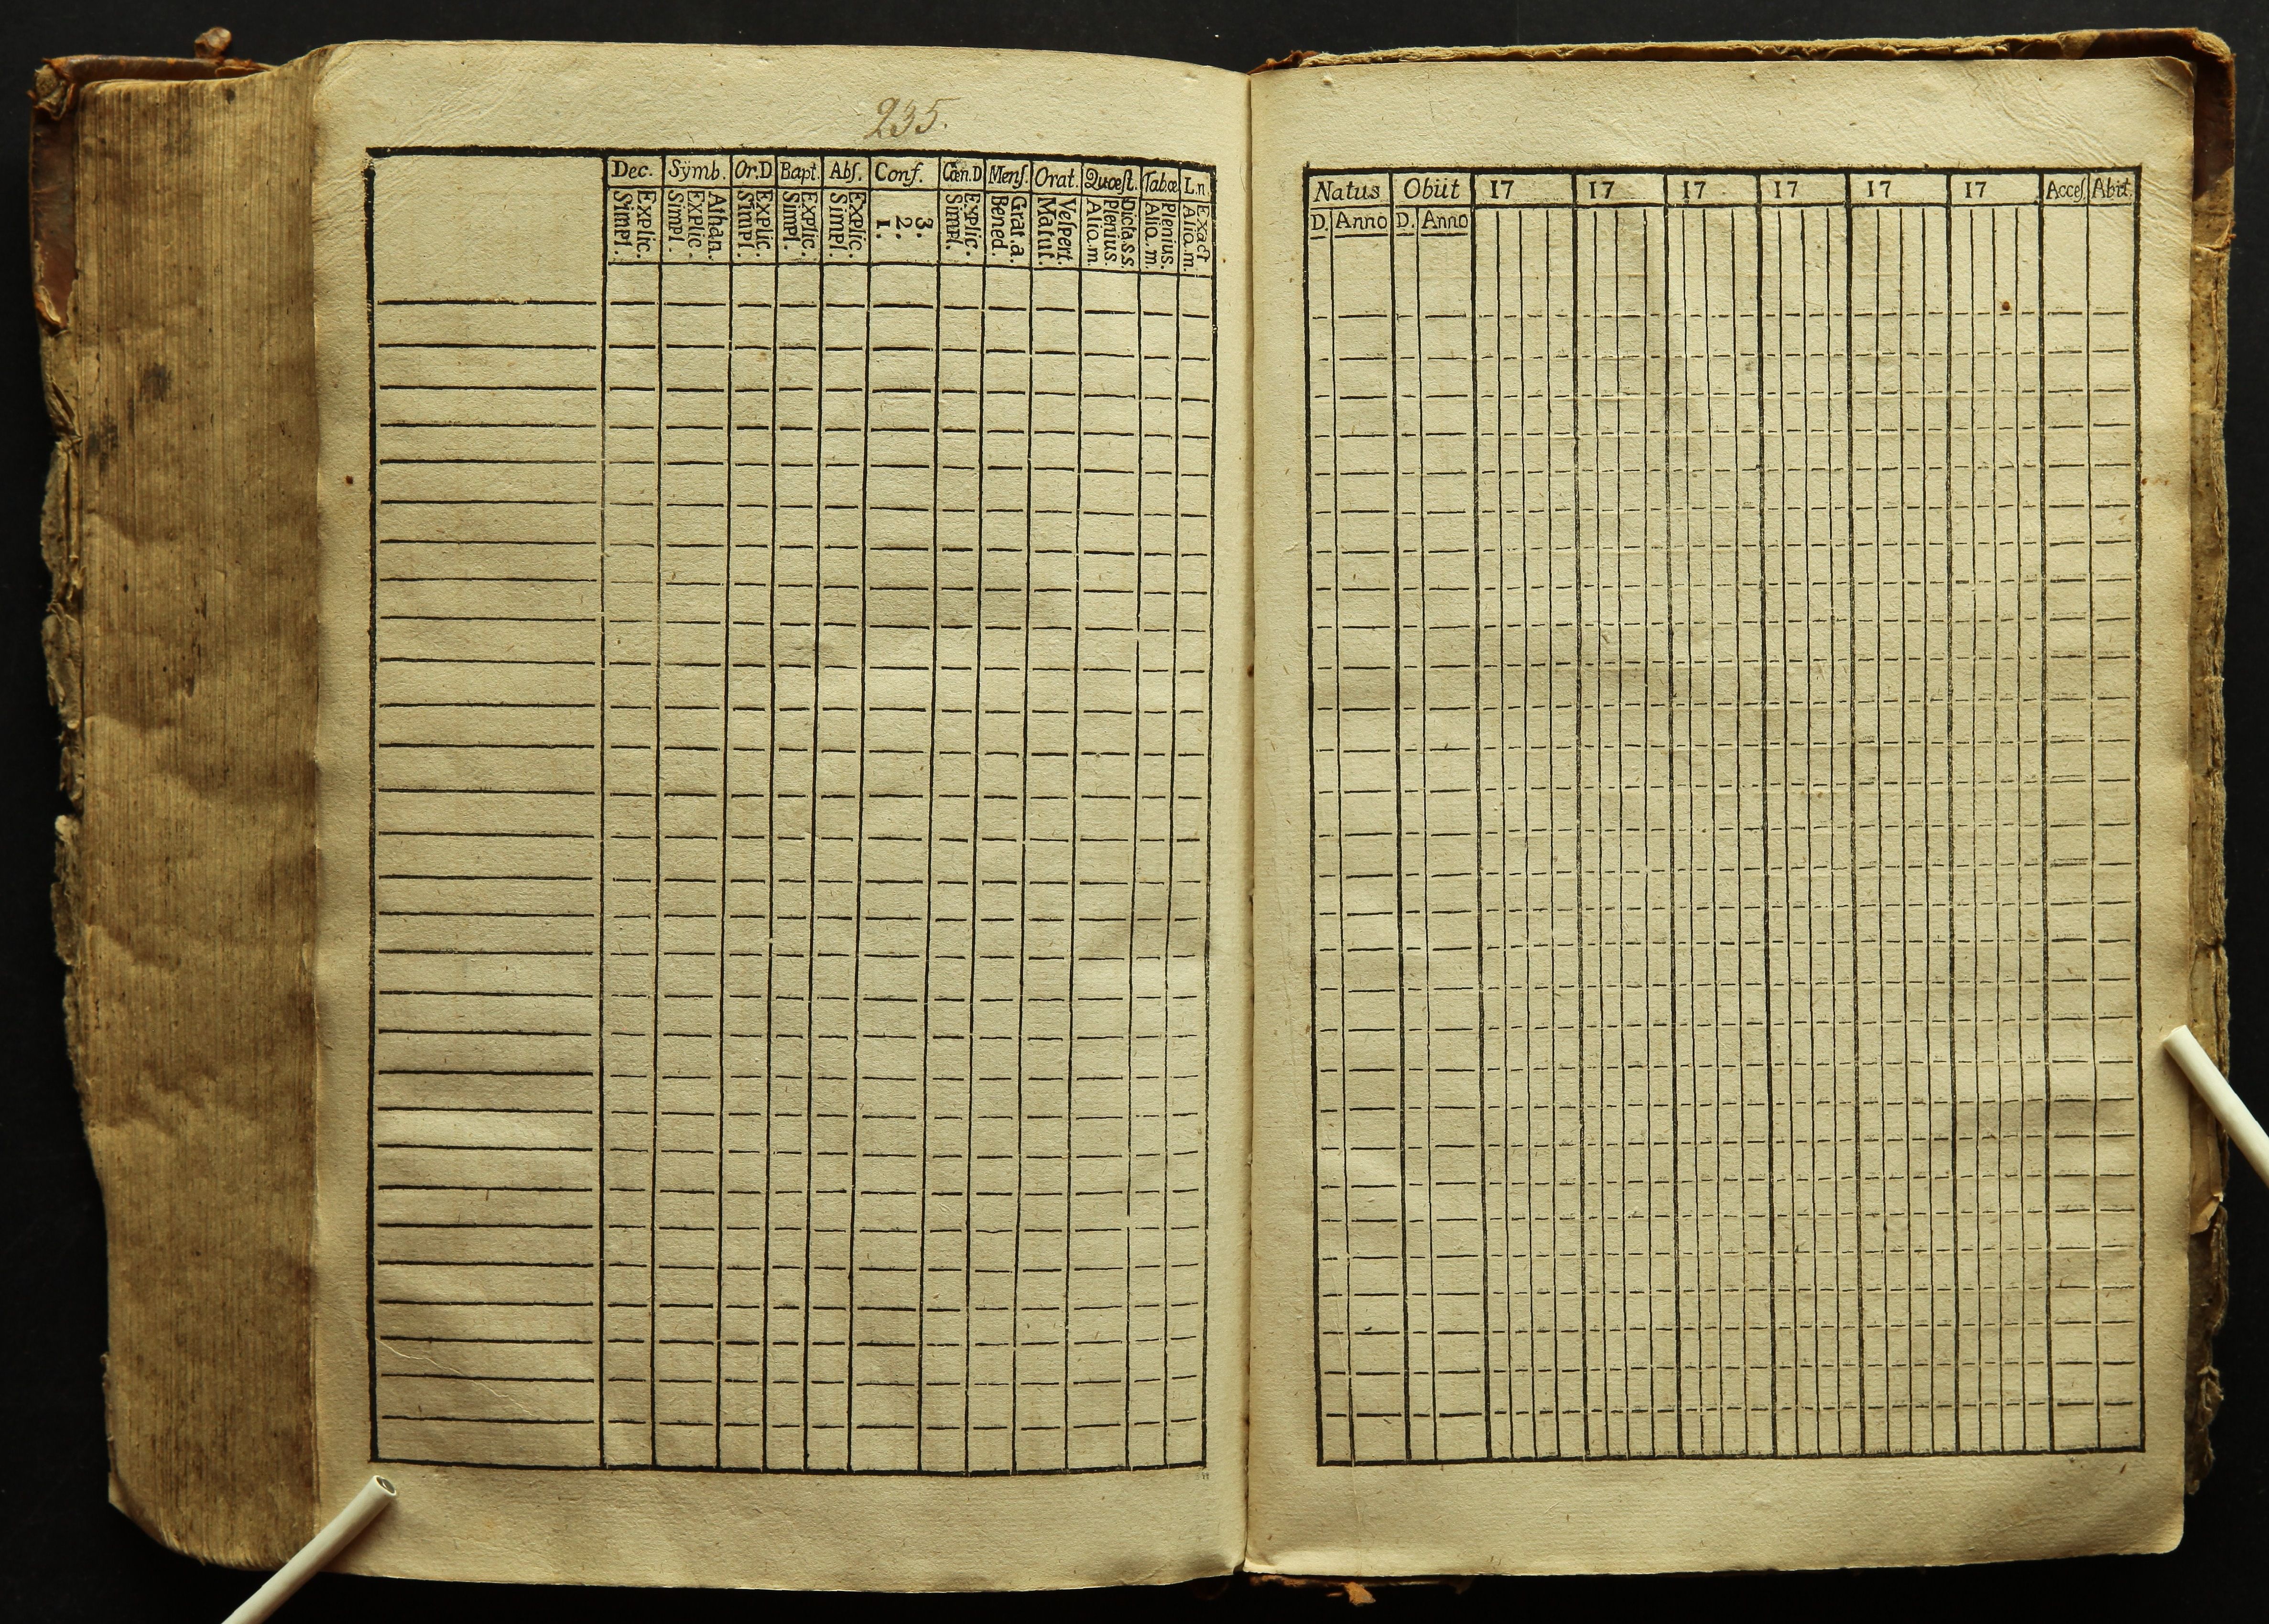 235.
Dec. Sÿmb. Or.D Bapt. Abſ. Conf. Cœn.D Menſ. Orat. Quœſt. Tab.œ L.n.
Explic. Athan. Explic. Explic. Explic. 3. Explic. Grat.a. Veſpert. Dicta.s.s. Plenius. Exact
Simpl. Explic. Simpl. Simpl. Simpl. 2. Simpl. Bened. Matut. Plenius. Alio.m. Alio.m.
Simpl. 1. Alio.m.
Natus Obiit 17 17 17 17 17 17 Acceſ. Abiit.
D. Anno D. Anno